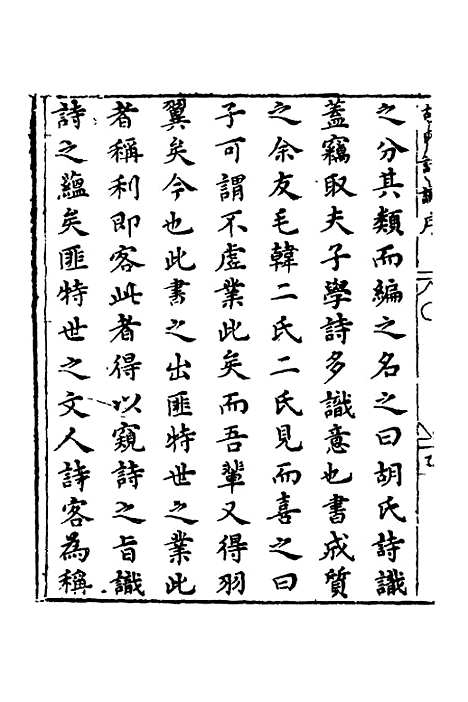 胡氏詩識序
之分其類而編之名之曰胡氏詩識
蓋竊取夫子學詩多識意也書成質
之余友毛韓二氏二氏見而喜之曰
子可謂不虛業此矣而吾輩又得羽
翼矣今也此書之出匪特世之業此
者稱利即客此者得以窺詩之旨識
詩之蘊矣匪特世之文人詩客為稱